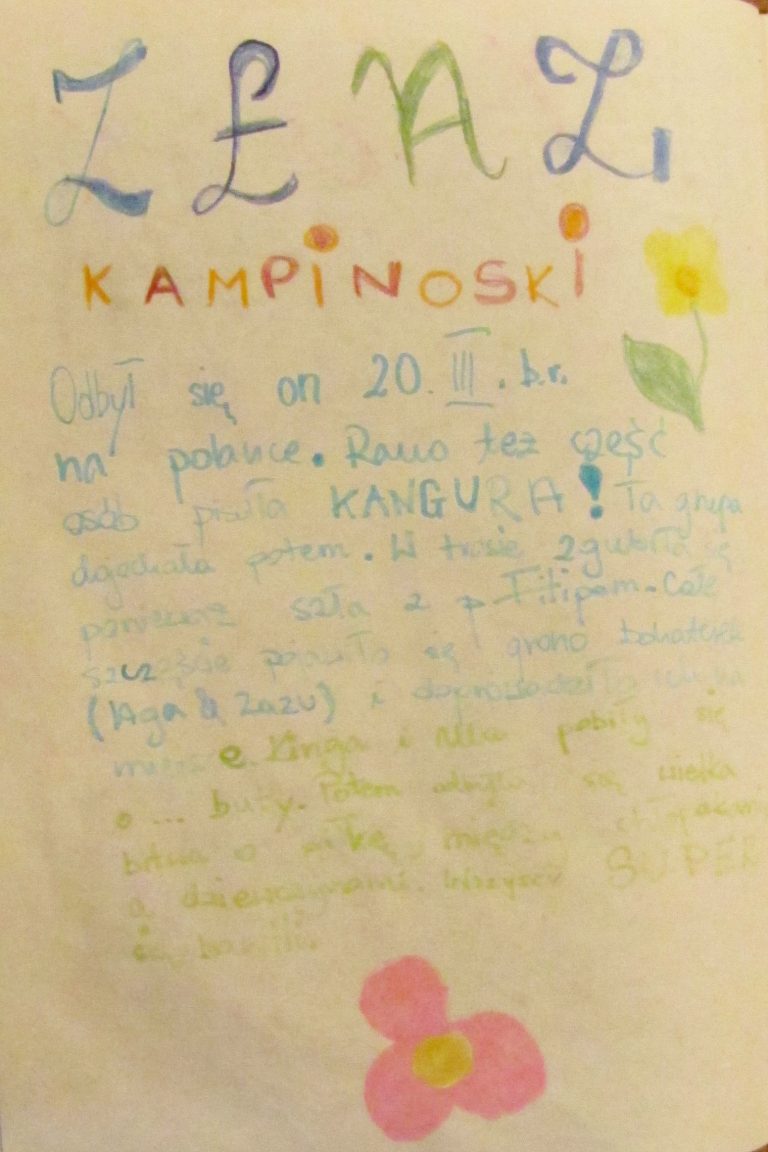 ZŁAZ
KAMPiNOSKi
Odbył się on 20. III. b.r.
na polance. Rano też część
osób pisała KANGURA! Ta grupa
dojechała potem. W trasie zgubiła się
ponieważ szła z p. Filipem. Całe
szczęście pojawiło się grono bohaterek
(Aga & Zazu) i doprowadziło ich na
miejsce. Kinga i Ala pobiły się
o... buty. Potem odbyła się wielka
bitwa o piłkę, między chłopakami
a dziewczynami. Wszyscy SUPER
się bawili.